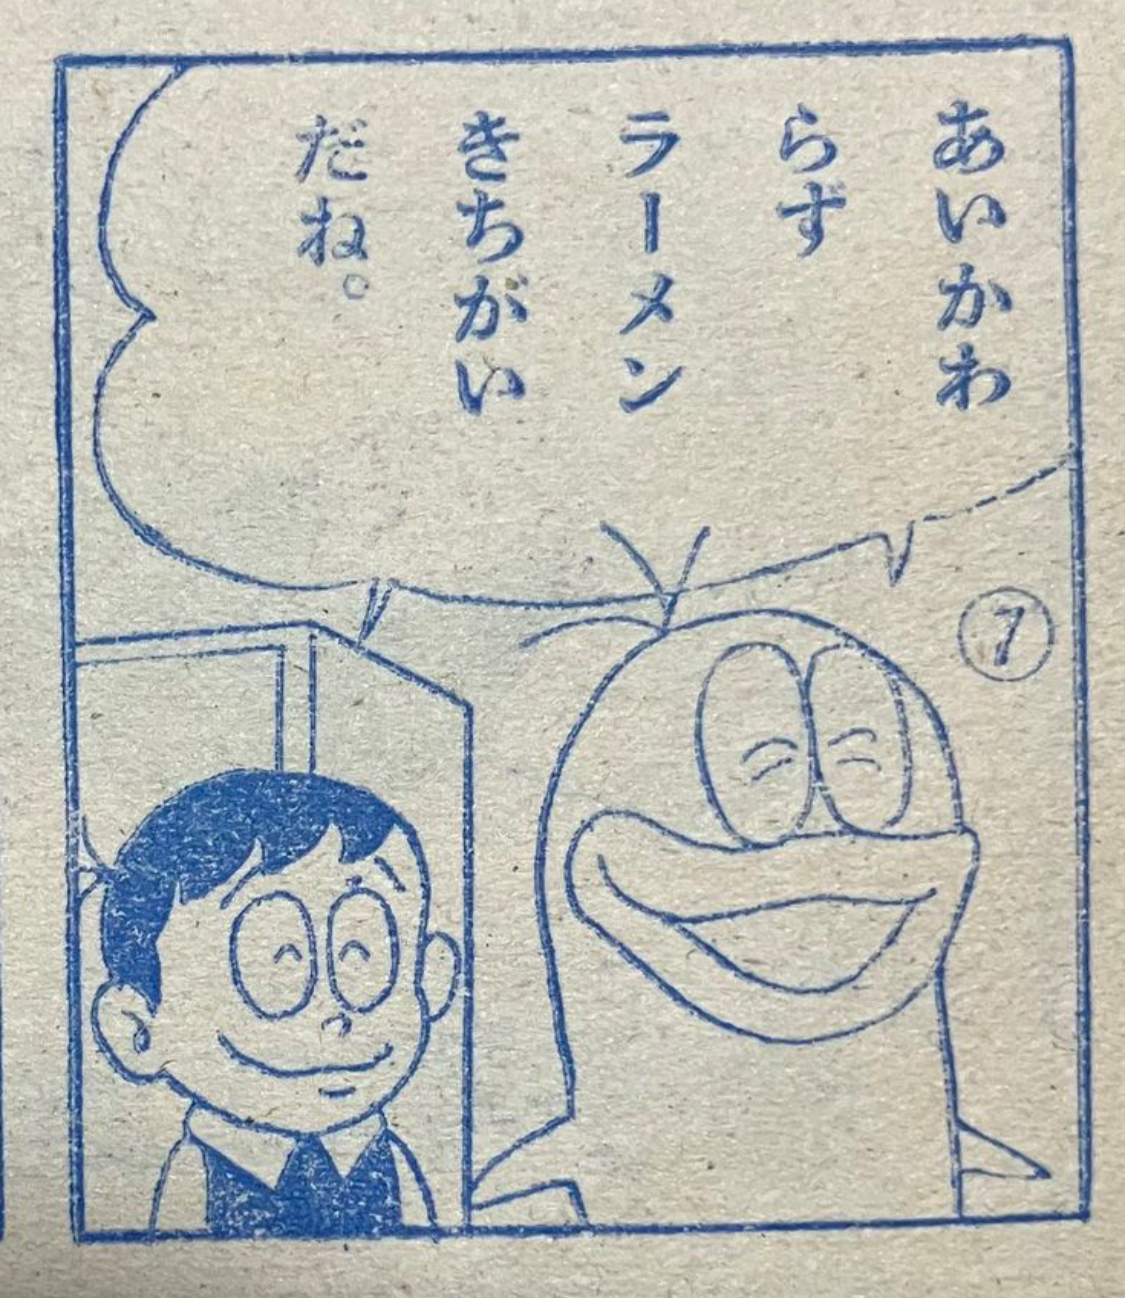 あいかわ
らず
ラーメン
きちがい
だね。
7